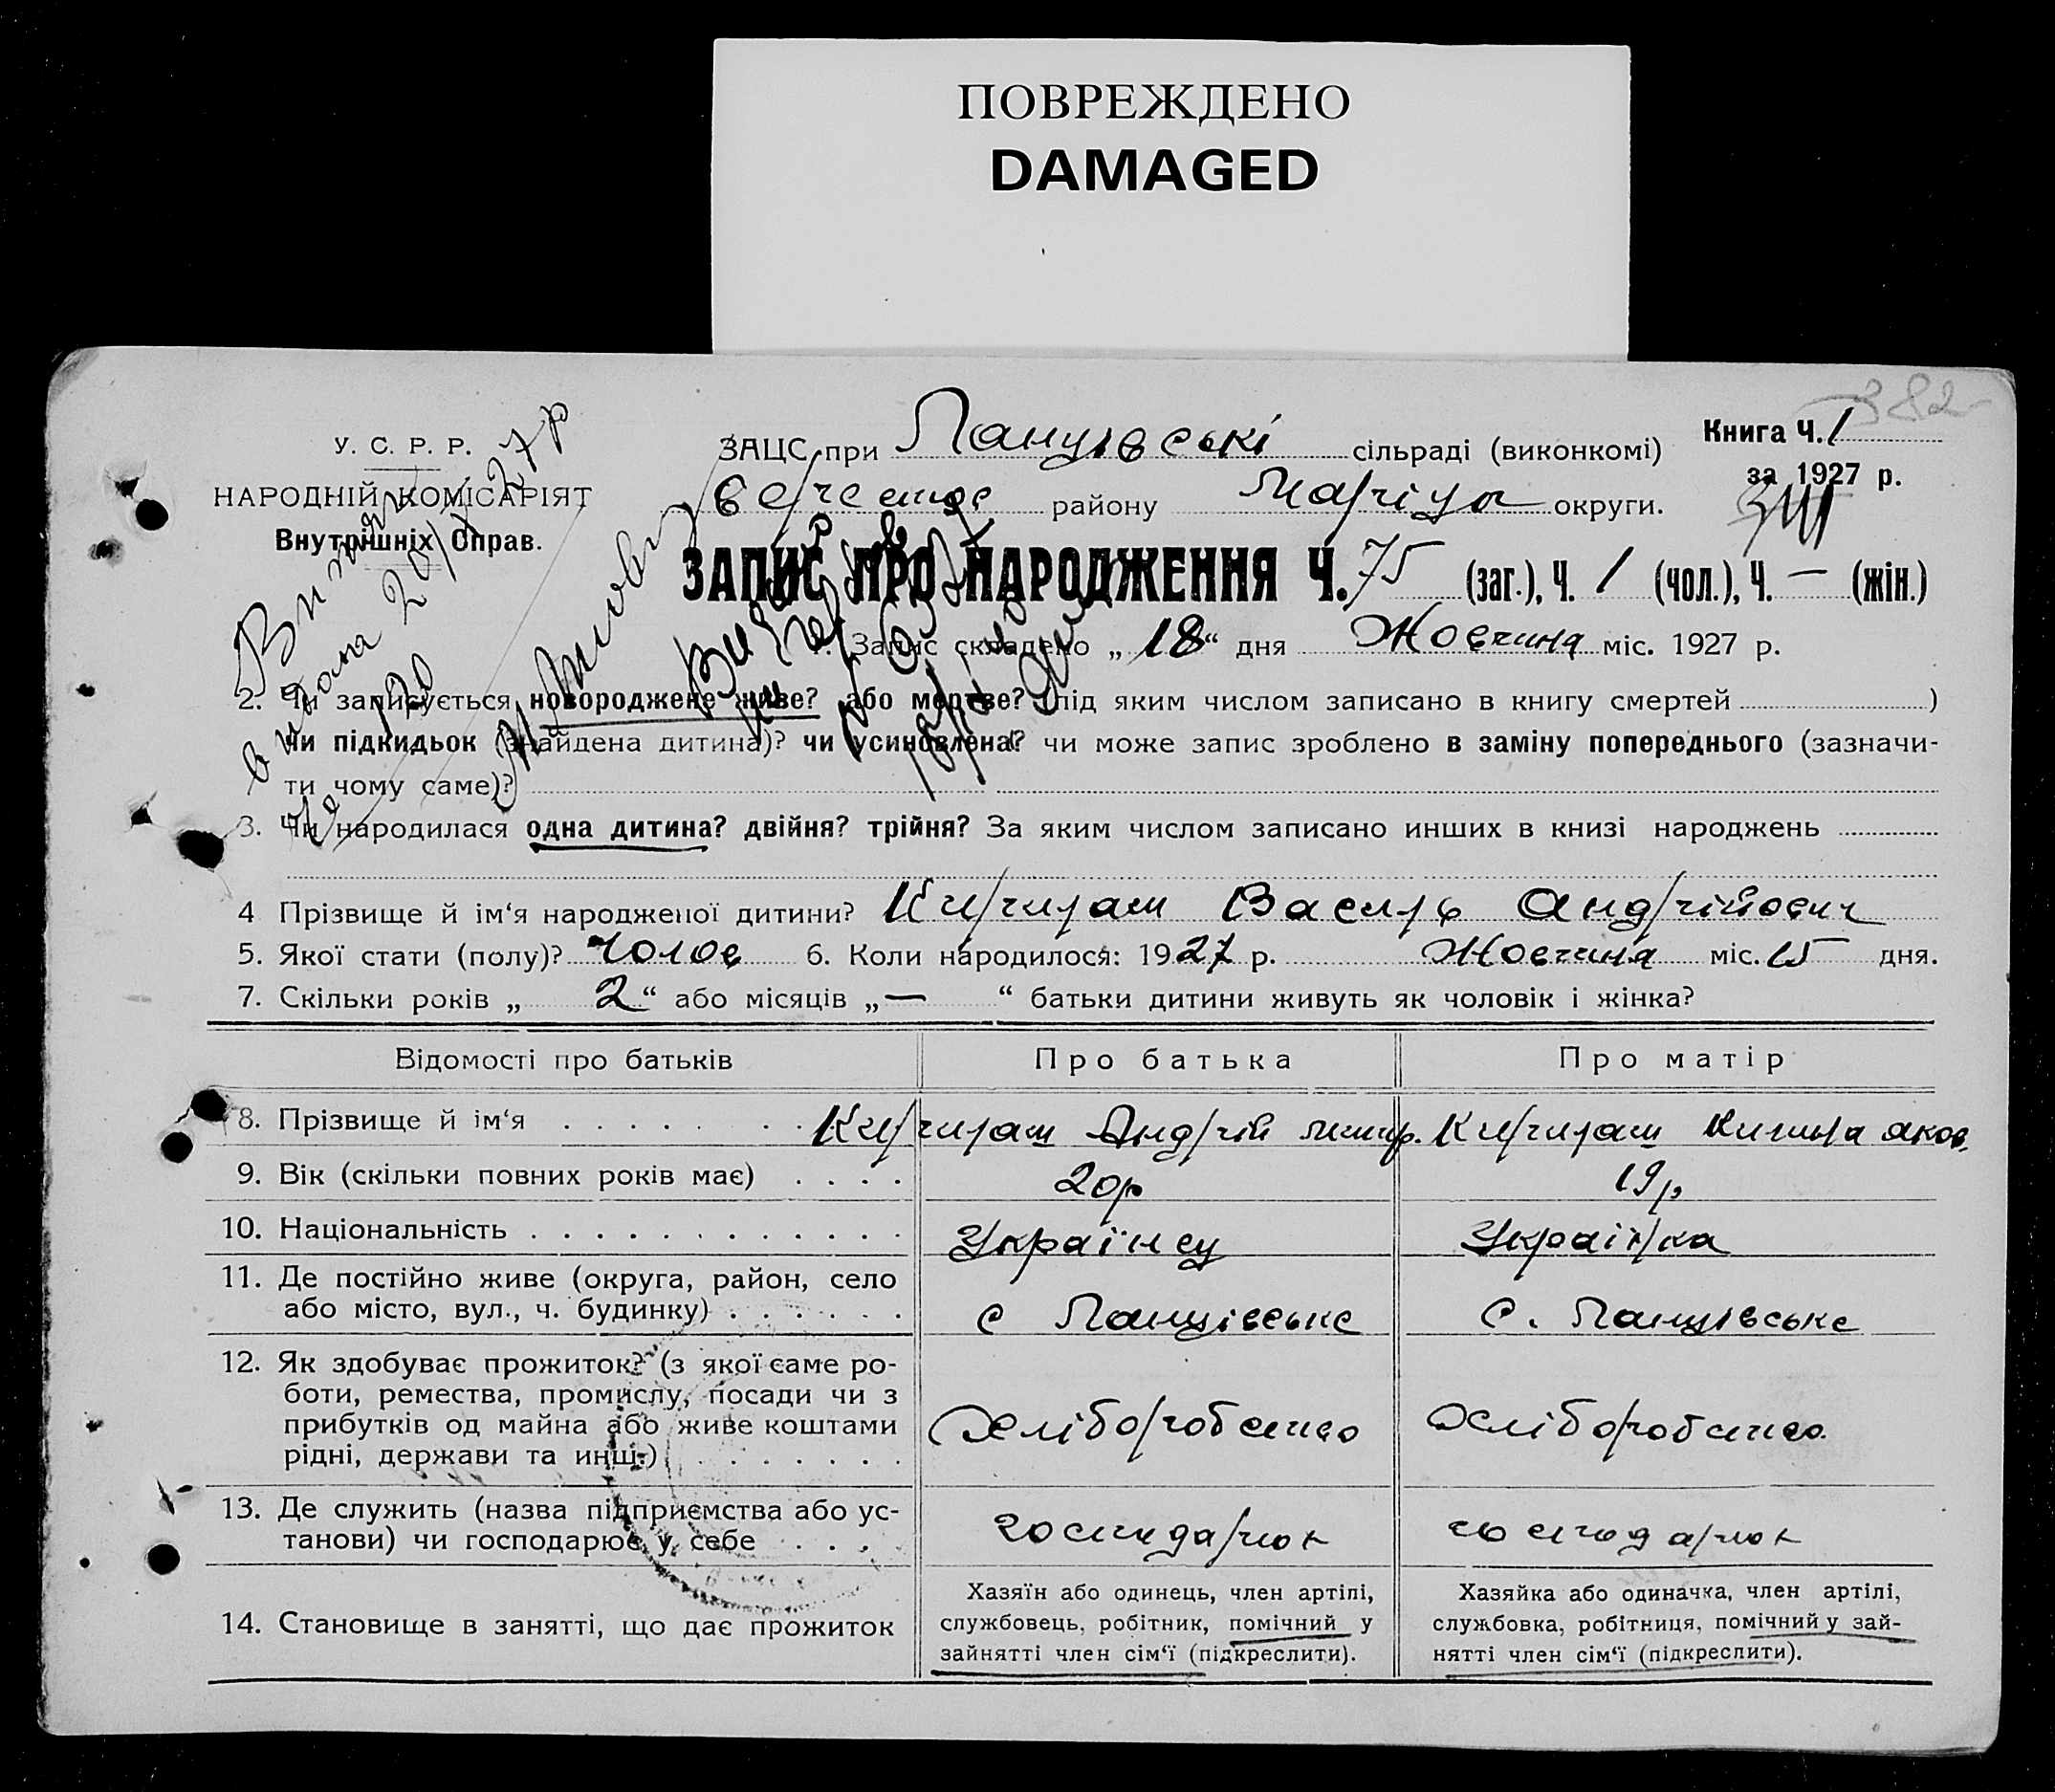 ПОВРЕЖДЕНО
DAMAGED
382
У. С. Р. Р.
НАРОДНІЙ КОМІСАРІЯТ
Внутрішніх Справ.
ЗАЦС при Ланцівські сільраді (виконкомі)
району Маріуп округи.
Книга Ч. 1
за 1927 р.
ЗАПИС ПРО НАРОДЖЕННЯ Ч. 75 (заг.), Ч. 1 (чол.), Ч. — (жін.)
1. Запис складено „ 18 “ дня Жовтня міс. 1927 р.
2. Чи записується новороджене живе? або мертве? (під яким числом записано в книгу смертей )
чи підкидьок (знайдена дитина)? чи усиновлена? чи може запис зроблено в заміну попереднього (зазначи-
ти чому саме)?
3. Чи народилася одна дитина? двійня? трійня? За яким числом записано инших в книзі народжень
4 Прізвище й ім‘я народженої дитини? Василь Андрійович
5. Якої стати (полу)? Чолов 6. Коли народилося: 1927 р. Жовтня міс. 15 дня.
7. Скільки років „ 2 “ або місяців „ — “ батьки дитини живуть як чоловік і жінка?
Відомості про батьків Про батька Про матір
8. Прізвище й ім‘я . . . . . . . Андрій
9. Вік (скільки повних років має) . . . . 20р 19р
10. Національність . . . . . . . . . . . . Українец Українка
11. Де постійно живе (округа, район, село
або місто, вул., ч. будинку) . . . . . . с Ланцівське с. Ланцівське
12. Як здобуває прожиток? (з якої саме ро-
боти, ремества, промислу, посади чи з
прибутків од майна або живе коштами
рідні, держави та инш.) . . . . . . . Хліборобство Хліборобство
13. Де служить (назва підприємства або ус-
танови) чи господарює у себе . . . .
14. Становище в занятті, що дає прожиток
Хазяїн або одинець, член артілі,
службовець, робітник, помічний у
зайнятті член сім‘ї (підкреслити).
Хазяйка або одиначка, член артілі,
службовка, робітниця, помічний у зай-
нятті член сім‘ї (підкреслити).